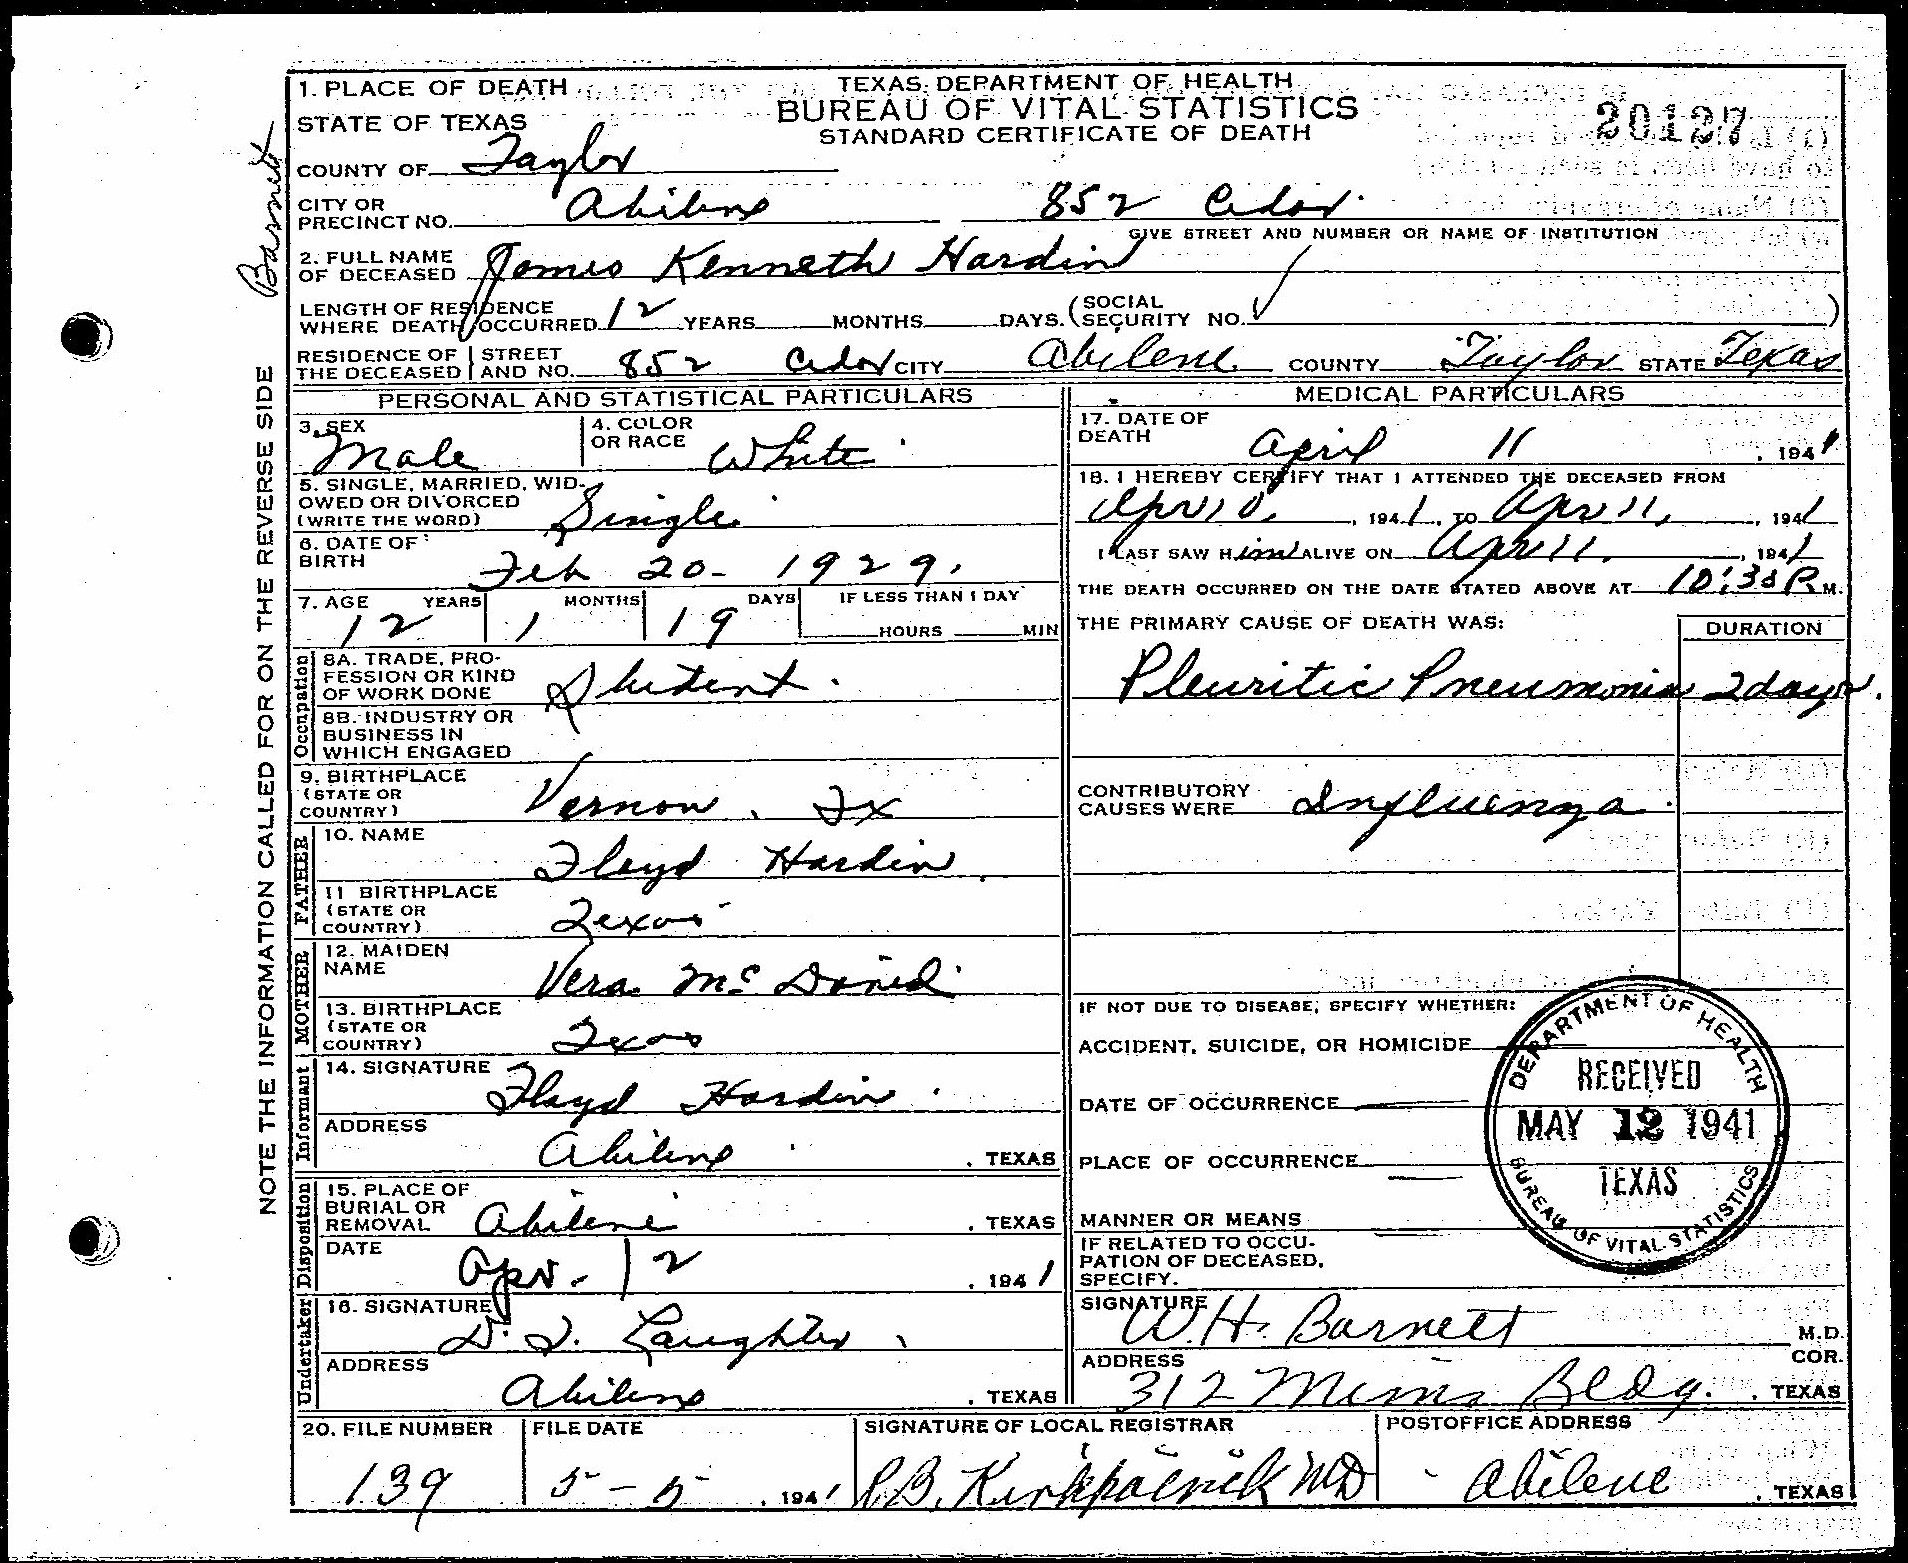 TEXAS DEPARTMENT OF HEALTH
BUREAU OF VITAL STATISTICS
STANDARD CERTIFICATE OF DEATH
20127
1. PLACE OF DEATH
STATE OF TEXAS
COUNTY OF Taylor
CITY OR PRECINCT NO. Abilene 852 Cedar
GIVE STREET AND NUMBER OR NAME OF INSTITUTION
2. FULL NAME OF DECEASED James Kenneth Hardin
LENGTH OF RESIDENCE WHERE DEATH OCCURRED 12 YEARS MONTHS DAYS. (SOCIAL SECURITY NO. )
RESIDENCE OF THE DECEASED STREET AND NO. 852 Cedar CITY Abilene COUNTY Taylor STATE Texas
Barnett
NOTE THE INFORMATION CALLED FOR ON THE REVERSE SIDE
PERSONAL AND STATISTICAL PARTICULARS
3. SEX Male
4. COLOR OR RACE White
5. SINGLE, MARRIED, WIDOWED OR DIVORCED (WRITE THE WORD) Single
6. DATE OF BIRTH Feb 20 - 1929.
7. AGE YEARS MONTHS DAYS IF LESS THAN 1 DAY
12 1 19 HOURS MIN
Occupation
8A. TRADE, PROFESSION OR KIND OF WORK DONE Student
8B. INDUSTRY OR BUSINESS IN WHICH ENGAGED
9. BIRTHPLACE (STATE OR COUNTRY) Vernon, Tx
FATHER
10. NAME Floyd Hardin
11 BIRTHPLACE (STATE OR COUNTRY) Texas
MOTHER
12. MAIDEN NAME Vera Mc
13. BIRTHPLACE (STATE OR COUNTRY) Texas
Informant
14. SIGNATURE Floyd Hardin
ADDRESS Abilene, TEXAS
Disposition
15. PLACE OF BURIAL OR REMOVAL Abilene, TEXAS
DATE Apr. 12, 1941
Undertaker
16. SIGNATURE Laughter
ADDRESS Abilene, TEXAS
MEDICAL PARTICULARS
17. DATE OF DEATH April 11, 1941
18. I HEREBY CERTIFY THAT I ATTENDED THE DECEASED FROM
Apr 10, 1941, TO Apr 11, 1941
I LAST SAW Him ALIVE ON Apr 11, 1941
THE DEATH OCCURRED ON THE DATE STATED ABOVE AT 10:30 P.M.
THE PRIMARY CAUSE OF DEATH WAS: DURATION
Pleuritic Pneumonia 2 days.
CONTRIBUTORY CAUSES WERE Influenza
IF NOT DUE TO DISEASE, SPECIFY WHETHER:
ACCIDENT, SUICIDE, OR HOMICIDE
DATE OF OCCURRENCE
PLACE OF OCCURRENCE
MANNER OR MEANS
IF RELATED TO OCCUPATION OF DECEASED, SPECIFY.
DEPARTMENT OF HEALTH
RECEIVED
MAY 12 1941
TEXAS
BUREAU OF VITAL STATISTICS
SIGNATURE W.H. Barnett M.D. COR.
ADDRESS 312 Mims Bldg., TEXAS
20. FILE NUMBER 139
FILE DATE 5-5, 1941
SIGNATURE OF LOCAL REGISTRAR B. Kirkpatrick MD
POSTOFFICE ADDRESS Abilene, TEXAS